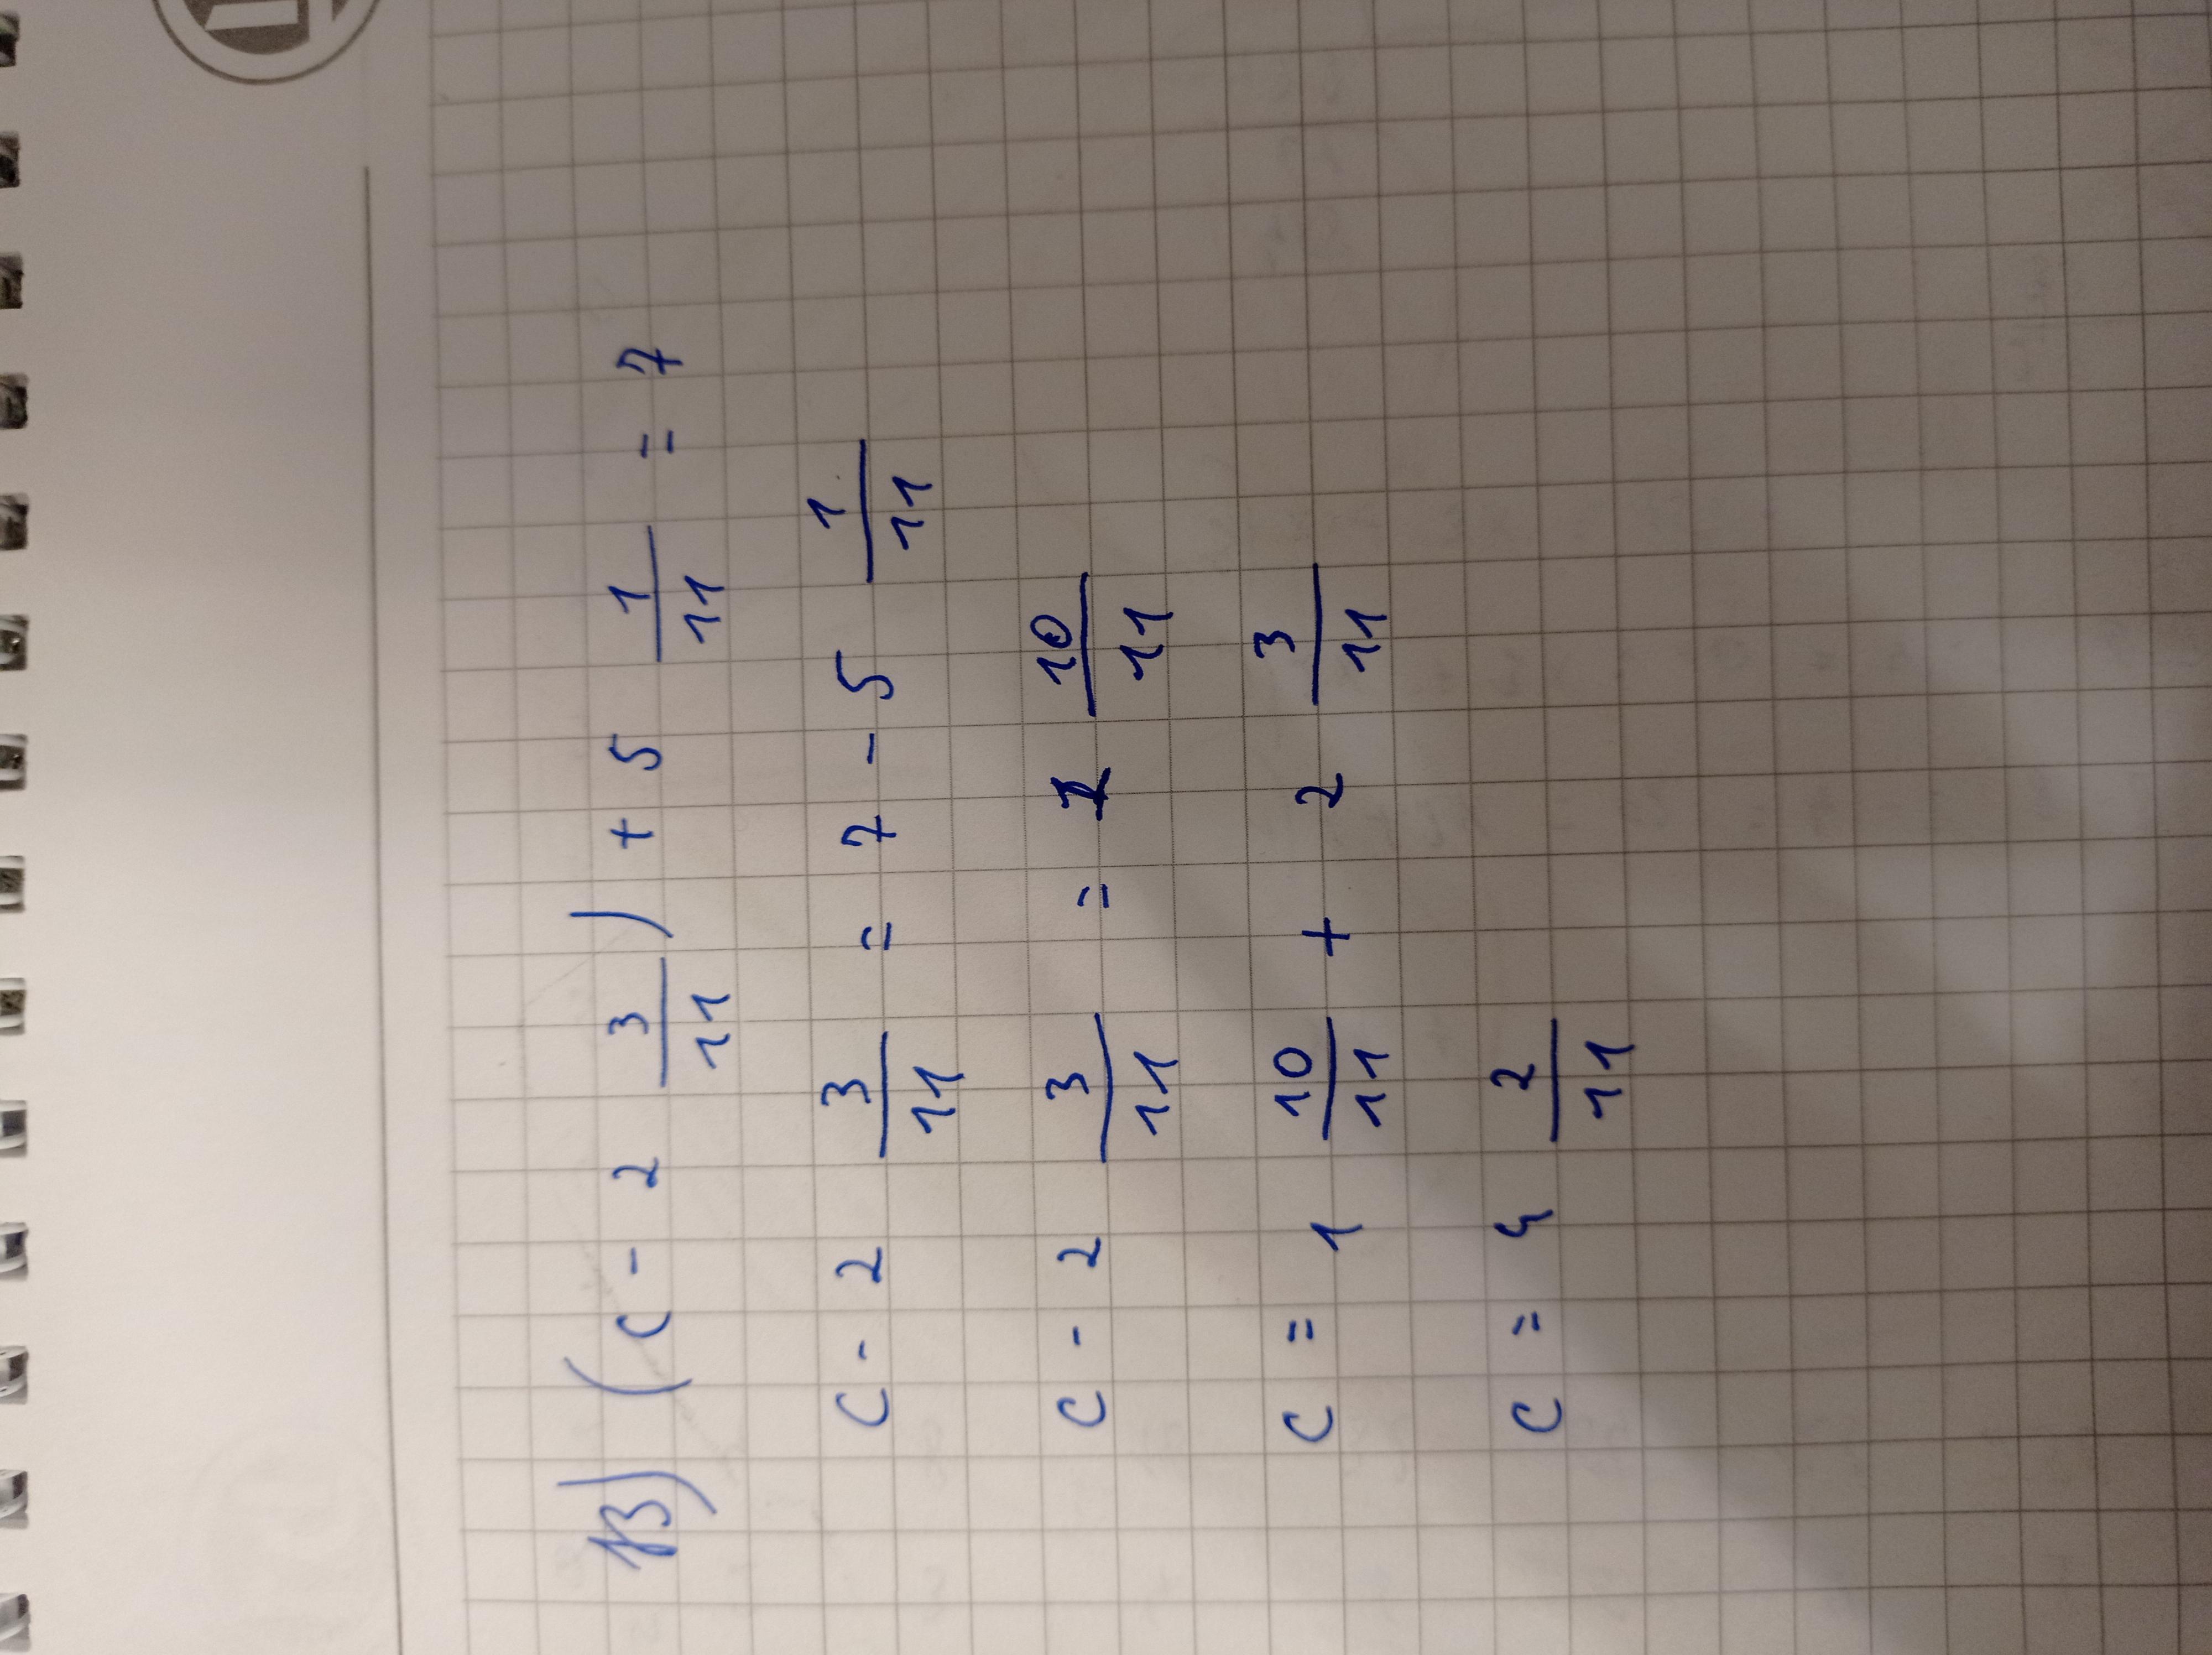 в) (c - 2 3/11) + 5 1/11 = 7
c - 2 3/11 = 7 - 5 1/11
c - 2 3/11 = 1 10/11
c = 1 10/11 + 2 3/11
c = 4 2/11